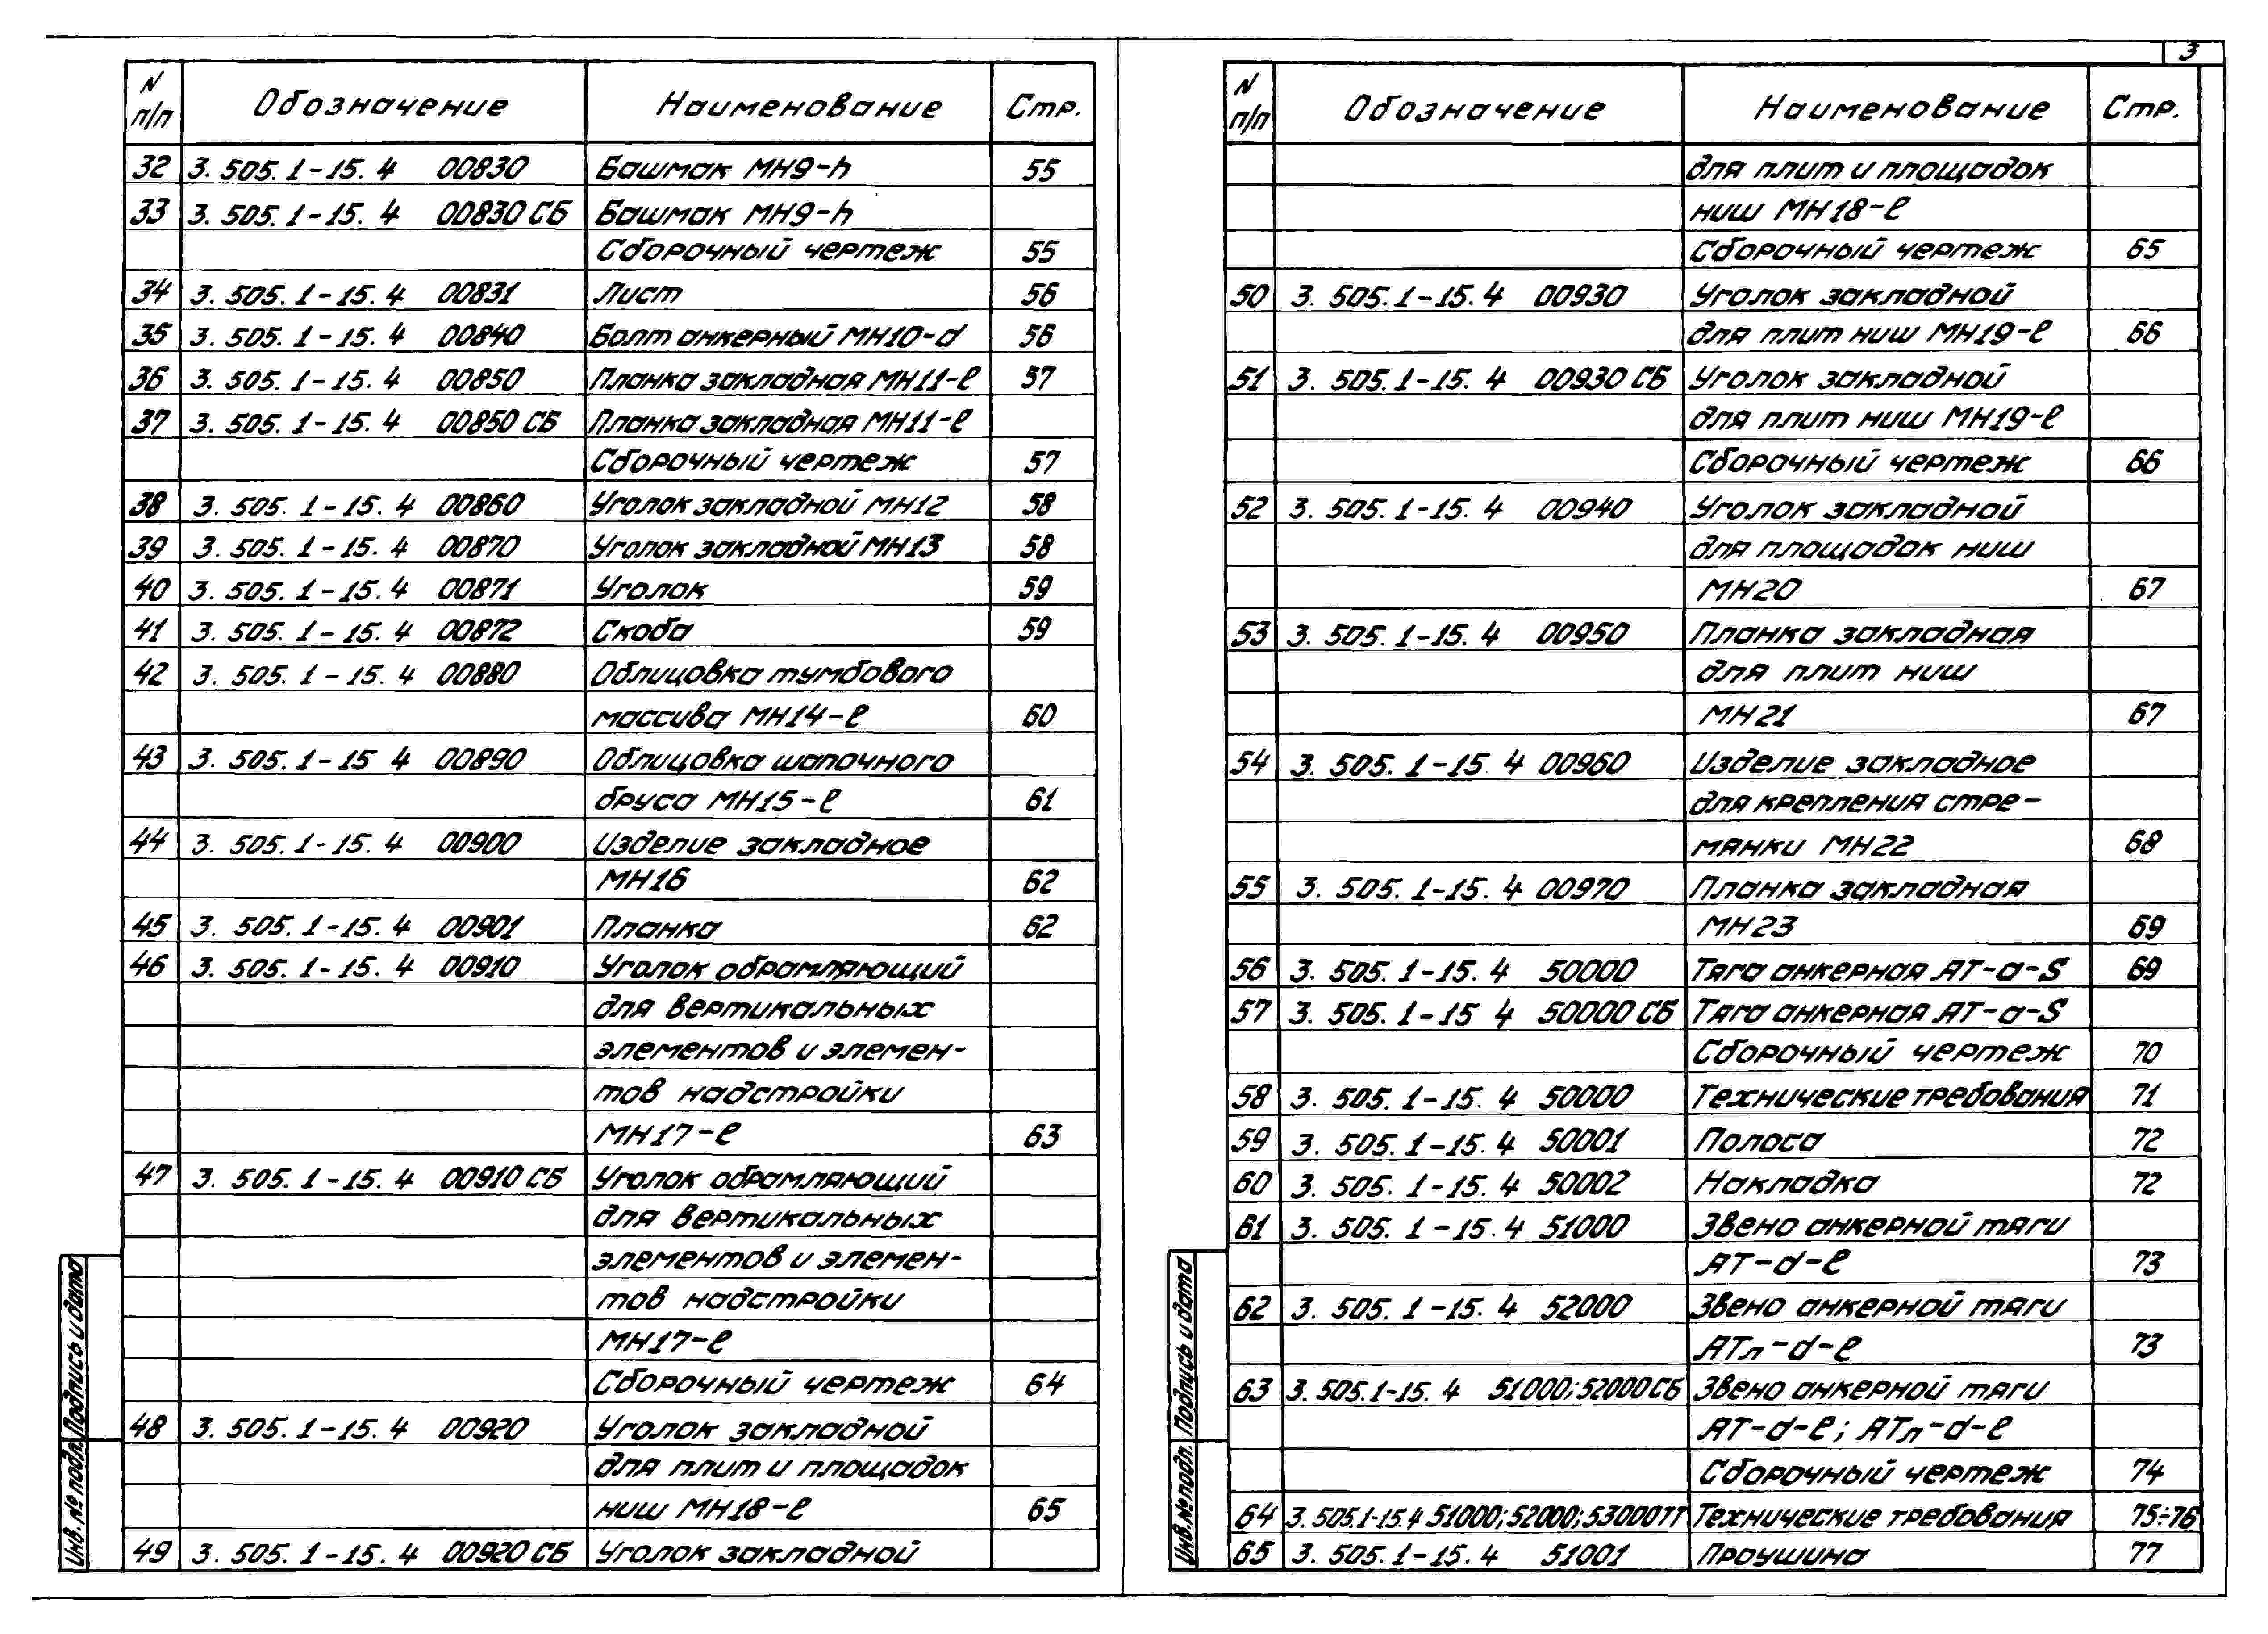 3
N п/п Обозначение Наименование Стр.
32 3.505.1-15.4 00830 Башмак МН9-h 55
33 3.505.1-15.4 00830 СБ Башмак МН9-h
Сборочный чертеж 55
34 3.505.1-15.4 00831 Лист 56
35 3.505.1-15.4 00840 Болт анкерный МН10-d 56
36 3.505.1-15.4 00850 Планка закладная МН11-ℓ 57
37 3.505.1-15.4 00850 СБ Планка закладная МН11-ℓ
Сборочный чертеж 57
38 3.505.1-15.4 00860 Уголок закладной МН12 58
39 3.505.1-15.4 00870 Уголок закладной МН13 58
40 3.505.1-15.4 00871 Уголок 59
41 3.505.1-15.4 00872 Скоба 59
42 3.505.1-15.4 00880 Облицовка тумбового
массива МН14-ℓ 60
43 3.505.1-15 4 00890 Облицовка шапочного
бруса МН15-ℓ 61
44 3.505.1-15.4 00900 Изделие закладное
МН16 62
45 3.505.1-15.4 00901 Планка 62
46 3.505.1-15.4 00910 Уголок обрамляющий
для вертикальных
элементов и элемен-
тов надстройки
МН17-ℓ 63
47 3.505.1-15.4 00910 СБ Уголок обрамляющий
для вертикальных
элементов и элемен-
тов надстройки
МН17-ℓ
Сборочный чертеж 64
48 3.505.1-15.4 00920 Уголок закладной
для плит и площадок
ниш МН18-ℓ 65
49 3.505.1-15.4 00920 СБ Уголок закладной
Инв. № подл. Подпись и дата
N п/п Обозначение Наименование Стр.
для плит и площадок
ниш МН18-ℓ
Сборочный чертеж 65
50 3.505.1-15.4 00930 Уголок закладной
для плит ниш МН19-ℓ 66
51 3.505.1-15.4 00930 СБ Уголок закладной
для плит ниш МН19-ℓ
Сборочный чертеж 66
52 3.505.1-15.4 00940 Уголок закладной
для площадок ниш
МН20 67
53 3.505.1-15.4 00950 Планка закладная
для плит ниш
МН21 67
54 3.505.1-15.4 00960 Изделие закладное
для крепления стре-
мянки МН22 68
55 3.505.1-15.4 00970 Планка закладная
МН23 69
56 3.505.1-15.4 50000 Тяга анкерная АТ-а-S 69
57 3.505.1-15 4 50000 СБ Тяга анкерная АТ-а-S
Сборочный чертеж 70
58 3.505.1-15.4 50000 Технические требования 71
59 3.505.1-15.4 50001 Полоса 72
60 3.505.1-15.4 50002 Накладка 72
61 3.505.1-15.4 51000 Звено анкерной тяги
АТ-d-ℓ 73
62 3.505.1-15.4 52000 Звено анкерной тяги
АТл-d-ℓ 73
63 3.505.1-15.4 51000; 52000 СБ Звено анкерной тяги
АТ-d-ℓ; АТл-d-ℓ
Сборочный чертеж 74
64 3.505.1-15.4 51000; 52000; 53000 ТТ Технические требования 75÷76
65 3.505.1-15.4 51001 Проушина 77
Инв. № подл. Подпись и дата